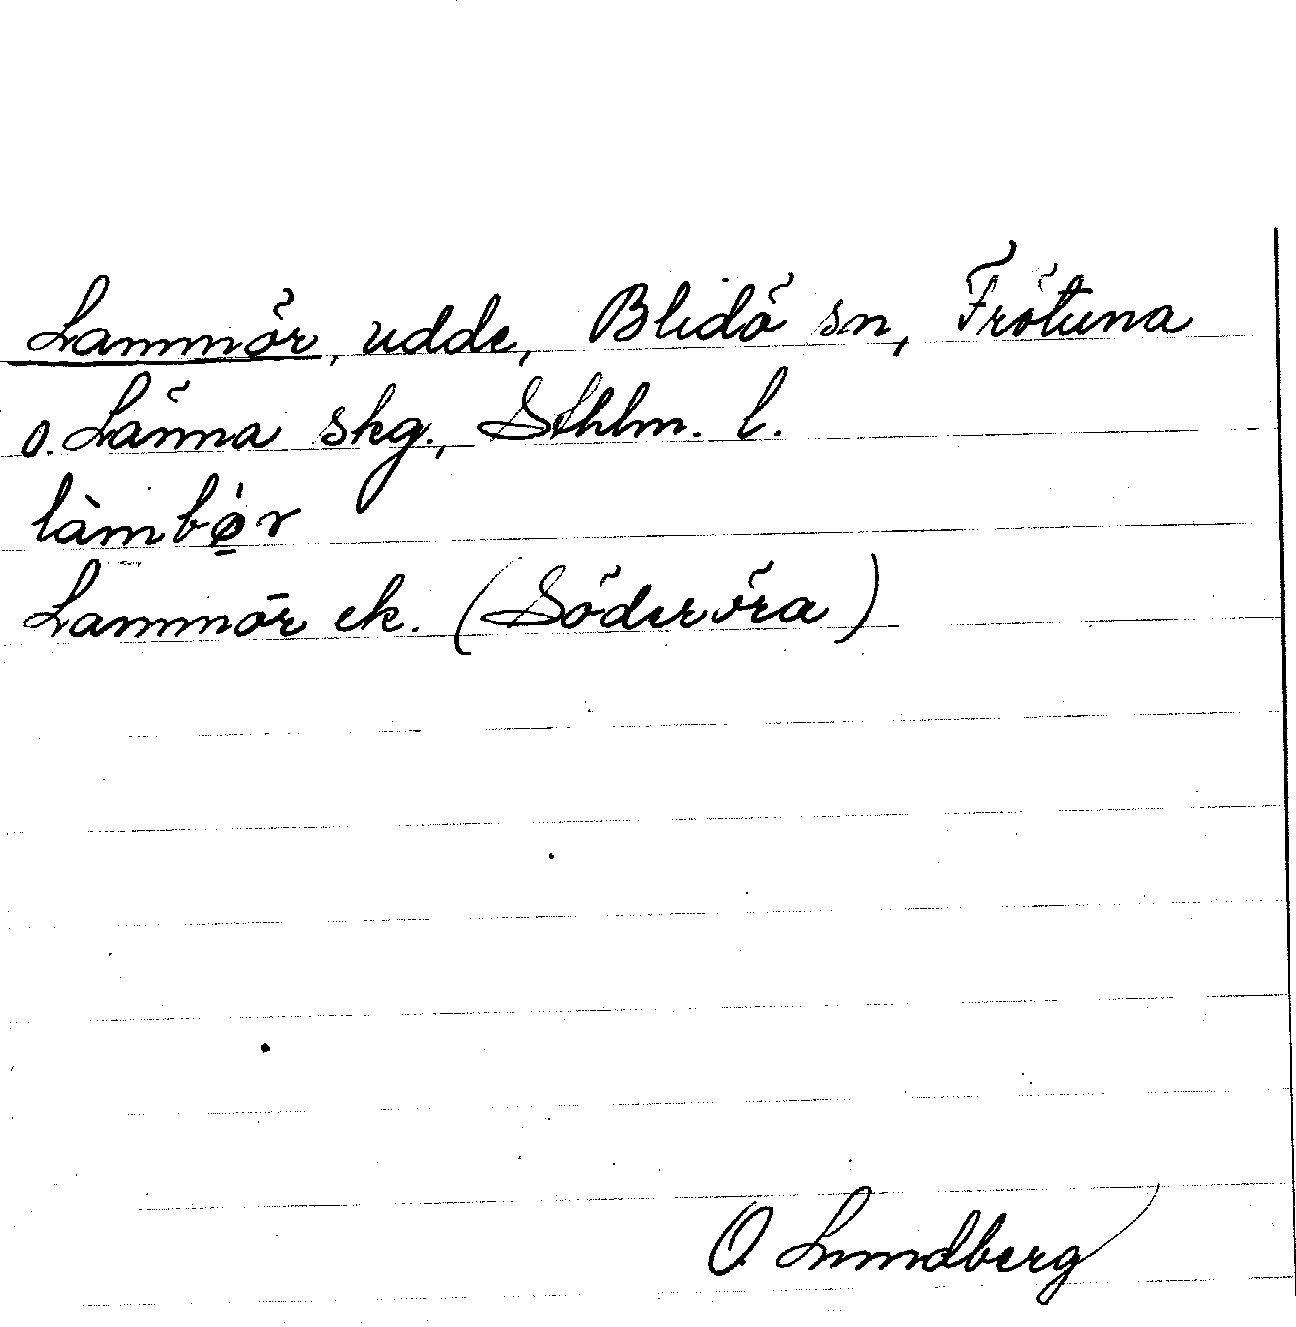 Lammör, udde, Blidö sn, Frötuna
o. Länna skg., Sthlm. l.
làmbø̱̀r
Lammör ek. (Söderöra)
O Lundberg